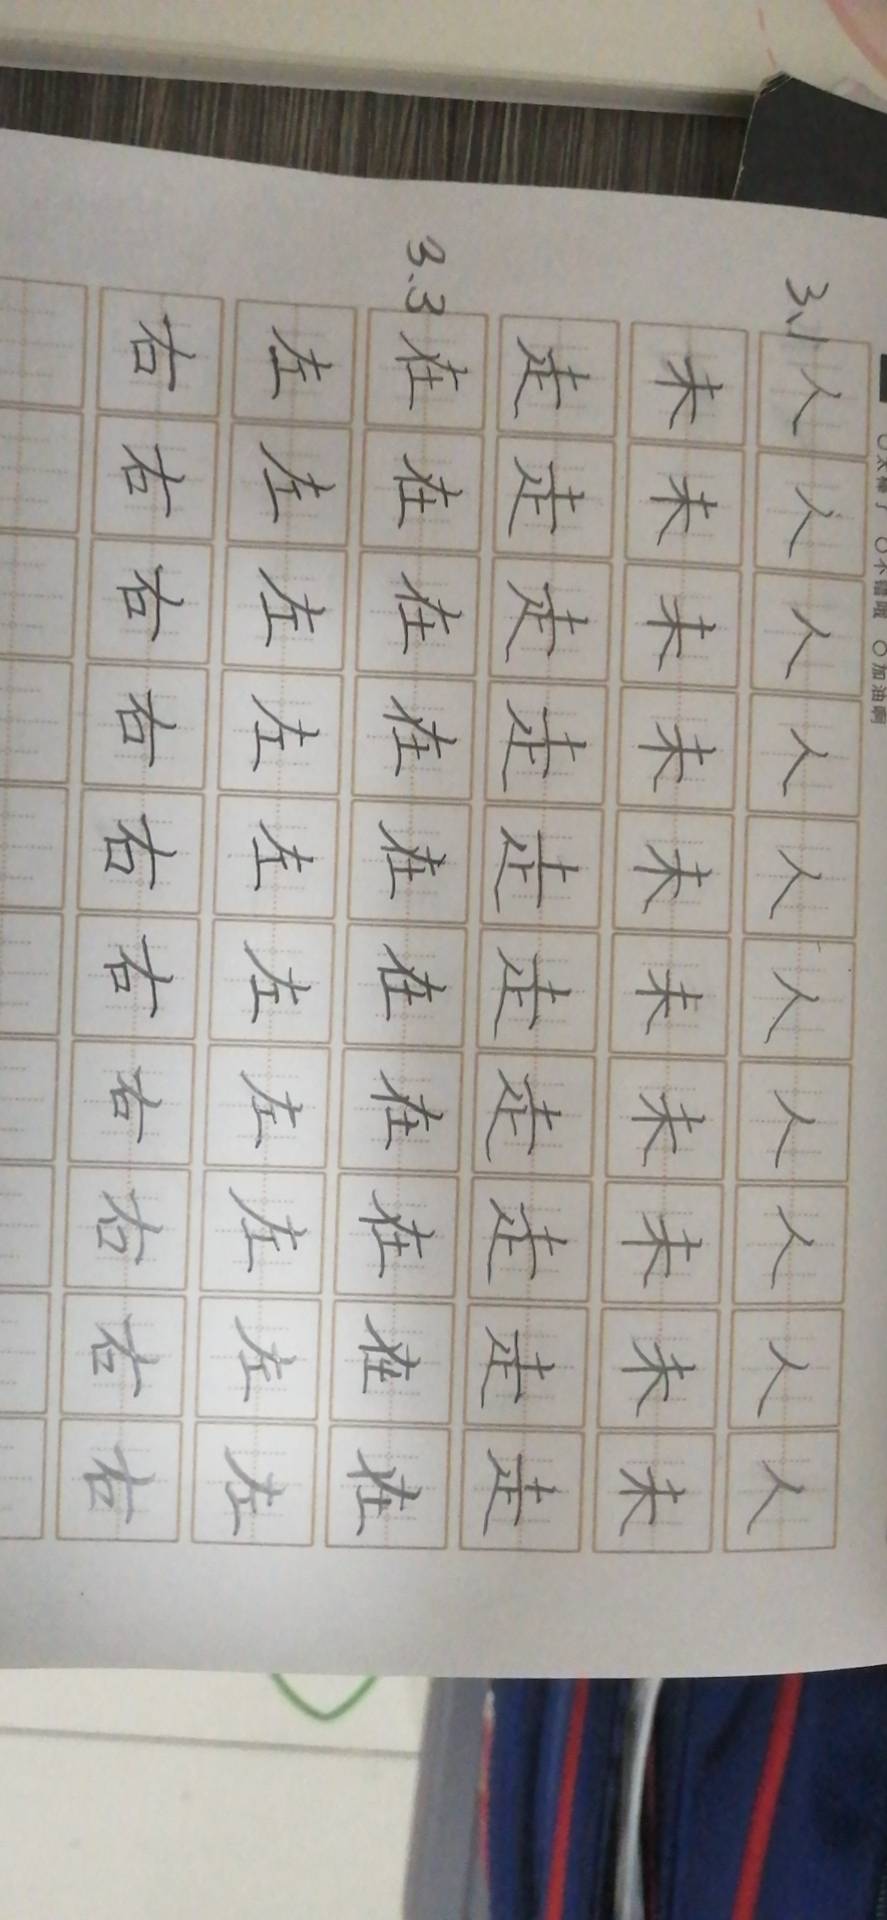 ○太棒了 ○不错哦 ○加油啊
3.1 人 人 人 人 人 人 人 人 人 人
未 未 未 未 未 未 未 未 未 未
走 走 走 走 走 走 走 走 走 走
3.3 在 在 在 在 在 在 在 在 在 在
左 左 左 左 左 左 左 左 左 左
右 右 右 右 右 右 右 右 右 右